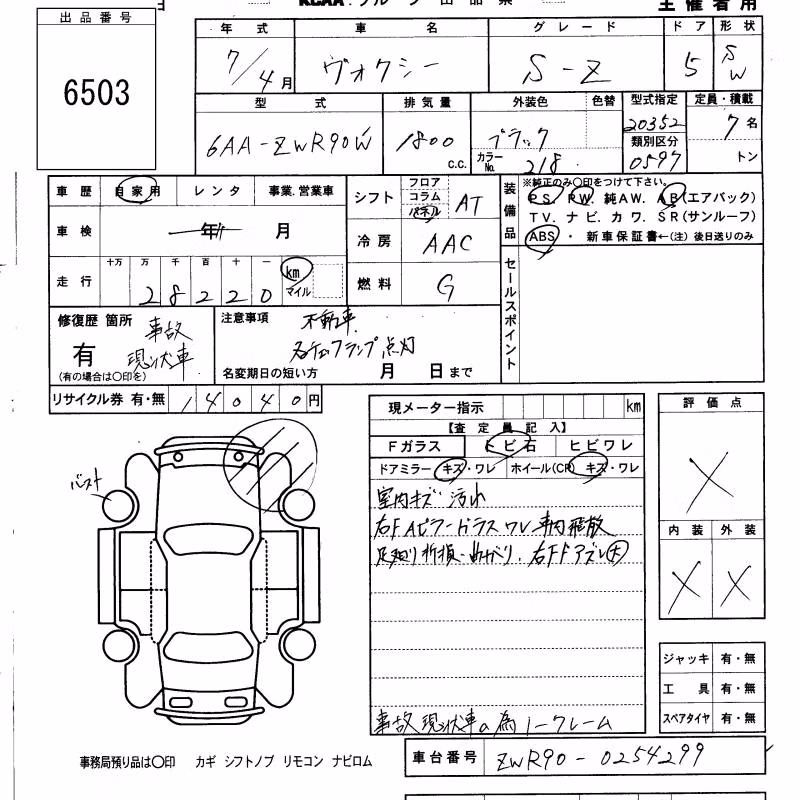 KCAA グループ 出品票
主催者用
出品番号
6503
年式 車名 グレード ドア 形状
7/4月 ヴォクシー S-Z 5 SW
型式 排気量 外装色 色替 型式指定 定員・積載
6AA-ZWR90W 1800 c.c. ブラック 20352 7名
カラーNo. 218 類別区分 0597 トン
車歴 自家用 レンタ 事業.営業車
車検 年 月
走行 十万 万 千 百 十 一
28220 km マイル
シフト フロア コラム パネル AT
冷房 AAC
燃料 G
装備品
※純正のみ〇印をつけて下さい。
PS. PW. 純AW. AB(エアバック)
TV. ナビ. カワ. SR(サンルーフ)
ABS・ 新車保証書←(注) 後日送りのみ
セールスポイント
修復歴 箇所
有
(有の場合は〇印を)
事故
現状車
注意事項
不動車
各チェックランプ点灯
名変期日の短い方 月 日まで
リサイクル券 有・無 14040円
現メーター指示 km
【査定員記入】
Fガラス トビ石 ヒビワレ
ドアミラー キズ・ワレ ホイール(CP) キズ・ワレ
室内キズ 汚れ
右FAピラーガラスワレ 車内飛散
足廻り折損・曲がり. 右FFアズレ大
事故現状車の為ノークレーム
評価点
X
内装 外装
X X
ジャッキ 有・無
工具 有・無
スペアタイヤ 有・無
バースト
事務局預り品は〇印 カギ シフトノブ リモコン ナビロム
車台番号 ZWR90-0254299